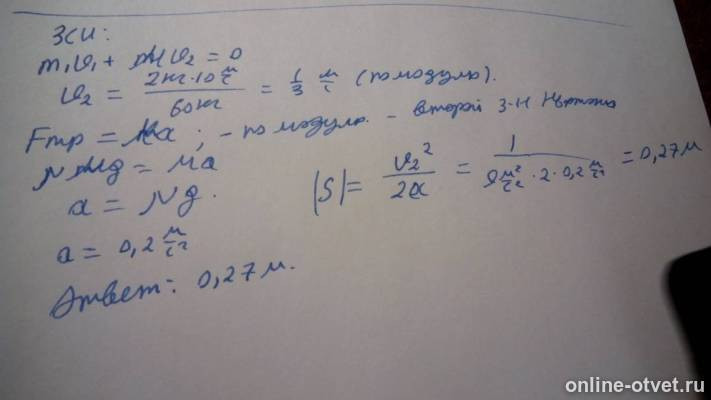 ЗСИ:
m₁υ₁ + Mυ₂ = 0
υ₂ = 2кг·10 м/с / 60кг = 1/3 м/с (по модулю).
Fтр = Ma; - по модулю. - второй З-н Ньютона
μMg = Ma
a = μg.
a = 0,2 м/с²
|S| = υ₂²/2a = 1 / 9 м²/с² · 2 · 0,2 м/с² = 0,27 м
Ответ: 0,27 м.
online-otvet.ru